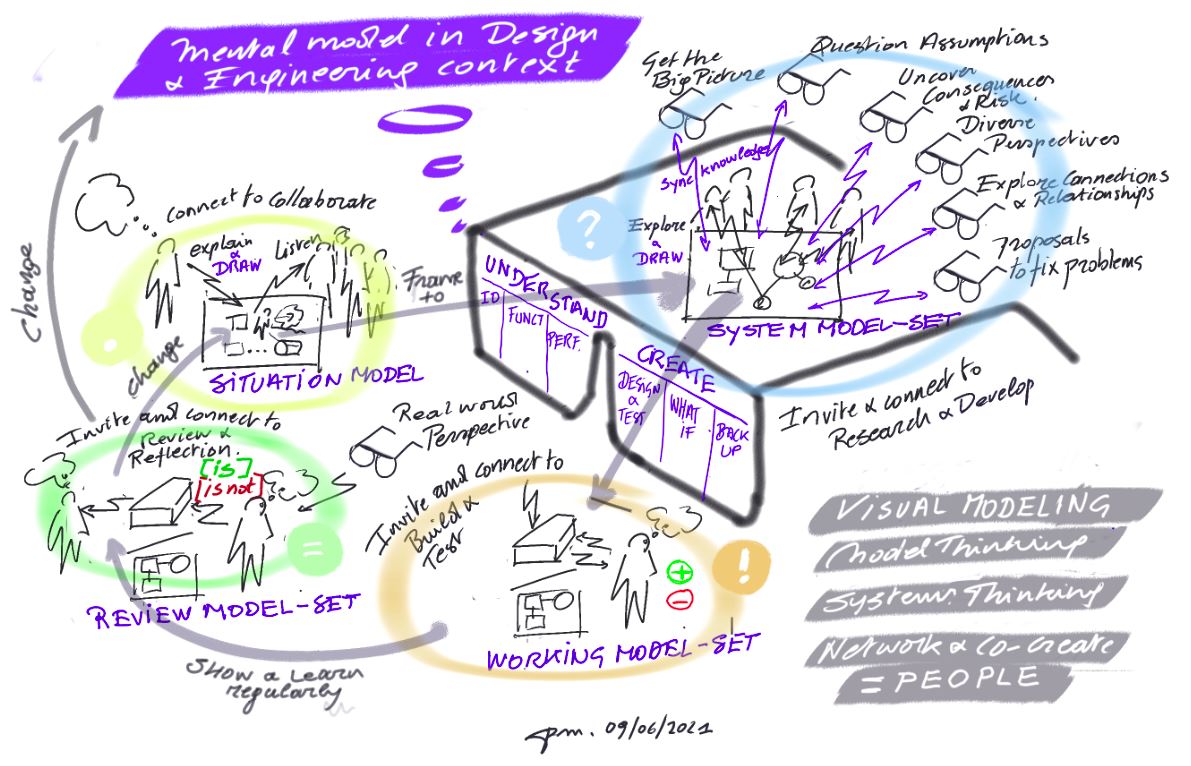 mental model in Design
& Engineering context
Get the
Big Picture
Question Assumptions
Uncover
Consequences
& Risk.
Diverse
Perspectives
Explore Connections
& Relationships
Proposals
to fix problems
Sync knowledge
Explore
&
DRAW
SYSTEM MODEL-SET
?
Connect to Collaborate
explain
&
DRAW
Listen
SITUATION MODEL
Change
change
Frame
to
UNDERSTAND
ID
FUNCT
PERF.
CREATE
DESIGN
&
TEST
WHAT
IF
BACK
UP
Invite & connect to
Research & Develop
Invite and connect to
Review &
Reflection.
[is]
[is not]
Real world
Perspective
=
REVIEW MODEL-SET
Invite and connect to
Build &
Test
!
+
-
WORKING MODEL-SET
Show & Learn
regularly
VISUAL MODELING
Model Thinking
Systems Thinking
Network & Co-create
= PEOPLE
pm. 09/06/2021